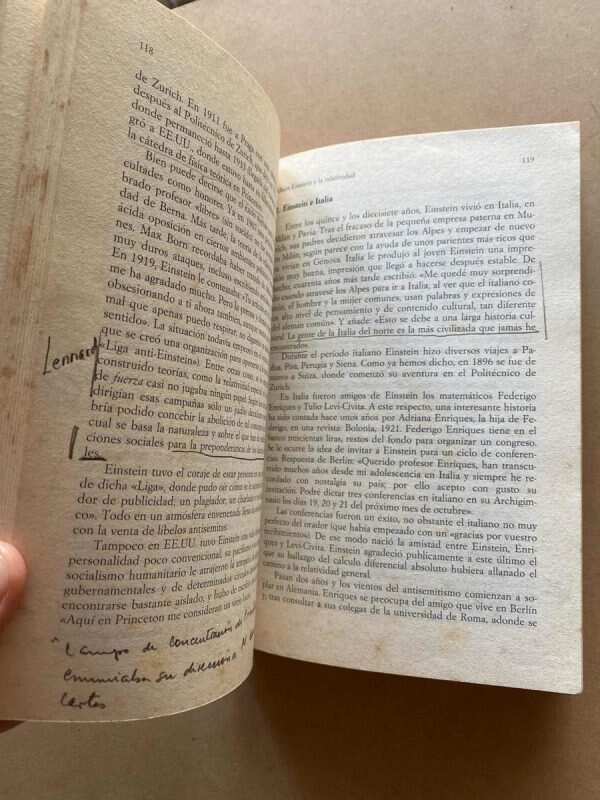 118
de Zurich. En 1911 fue a Praga
después al Politécnico de Zurich
donde permaneció hasta 1933
gró a EE.UU., donde
la cátedra de física teórica en
Bien puede decirse que
cultades como honores. Ya en
brado profesor «libre» sin
dad de Berna. Más tarde, la teoría de
ácida oposición en ciertos
nes. Max Born recordaba haber
muy duros ataques, incluso
En 1919, Einstein le contestó: «Tu
me ha agradado mucho. Pero la
obsesionando a ti ahora también,
mal que apenas puedo respirar, no
sentido». La situación todavía empeoró en
que se creó una organización para
«Liga anti-Einstein». Entre otras
construido teorías, como la relatividad
de fuerza casi no jugaban ningún papel.
dirigían esas campañas solo un judío
bría podido concebir la abolición de
cual se basa la naturaleza y sobre el que
ciones sociales para la preponderancia de
les.
Einstein tuvo el coraje de estar presente
de dicha «Liga», donde pudo oír cómo se
dor de publicidad, un plagiador, un
co». Todo en un atmósfera envenenada
con la venta de libelos antisemitas.
Tampoco en EE.UU. tuvo Einstein
personalidad poco convencional, su
socialismo humanitario le atrajeron la
gubernamentales y de determinada
encontrarse bastante aislado, y hubo de
«Aquí en Princeton me consideran un
de concentración de
su
cartas
119
Einstein y la relatividad
Einstein e Italia
Entre los quince y los diecisiete años, Einstein vivió en Italia,
Milán y Pavía. Tras el fracaso de la pequeña empresa paterna en Mu-
sus padres decidieron atravesar los Alpes y empezar de nuevo
Milán, según parece con la ayuda de unos parientes más ricos que
vivían en Génova. Italia le produjo al joven Einstein una impre-
muy buena, impresión que llegó a hacerse después estable. De
cuarenta años más tarde escribió: «Me quedé muy sorprendi-
cuando atravesé los Alpes para ir a Italia, al ver que el italiano co-
el hombre y la mujer comunes, usan palabras y expresiones de
alto nivel de pensamiento y contenido cultural, tan diferente
del alemán común». Y añade: «Esto se debe a una larga historia cul-
La gente de la Italia del norte es la más civilizada que jamás he
encontrado».
Durante el período italiano Einstein hizo diversos viajes a Pa-
Pisa, Perugia y Siena. Como ya hemos dicho, en 1896 se fue
a Suiza, donde comenzó su aventura en el Politécnico de
Zurich.
En Italia fueron amigos de Einstein los matemáticos Federigo
Enriques y Tulio Levi-Civita. A este respecto, una interesante historia
ha sido contada hace unos años por Adriana Enriques, la hija de Fe-
derigo, en una revista: Bolonia, 1921. Federigo Enriques tiene en el
banco trescientas liras, restos del fondo para organizar un congreso.
Se le ocurre la idea de invitar a Einstein para un ciclo de conferen-
cias. Respuesta de Berlín: «Querido profesor Enriques, han transcu-
rrido muchos años desde mi adolescencia en Italia y siempre he re-
cordado con nostalgia su país; por ello acepto con gusto su
invitación. Podré dictar tres conferencias en italiano en su Archigim-
los días 19, 20 y 21 del próximo mes de octubre».
Las conferencias fueron un éxito, no obstante el italiano no muy
perfecto del orador (que había empezado con un «gracias por vuestro
recibimiento»). De ese modo nació la amistad entre Einstein, Enri-
ques y Levi-Civita. Einstein agradeció públicamente a este último el
que su hallazgo del calculo diferencial absoluto hubiera allanado el
camino a la relatividad general.
Pasan dos años y los vientos del antisemitismo comienzan a so-
plar en Alemania. Enriques se preocupa del amigo que vive en Berlín
y, tras consultar a sus colegas de la universidad de Roma, adonde se